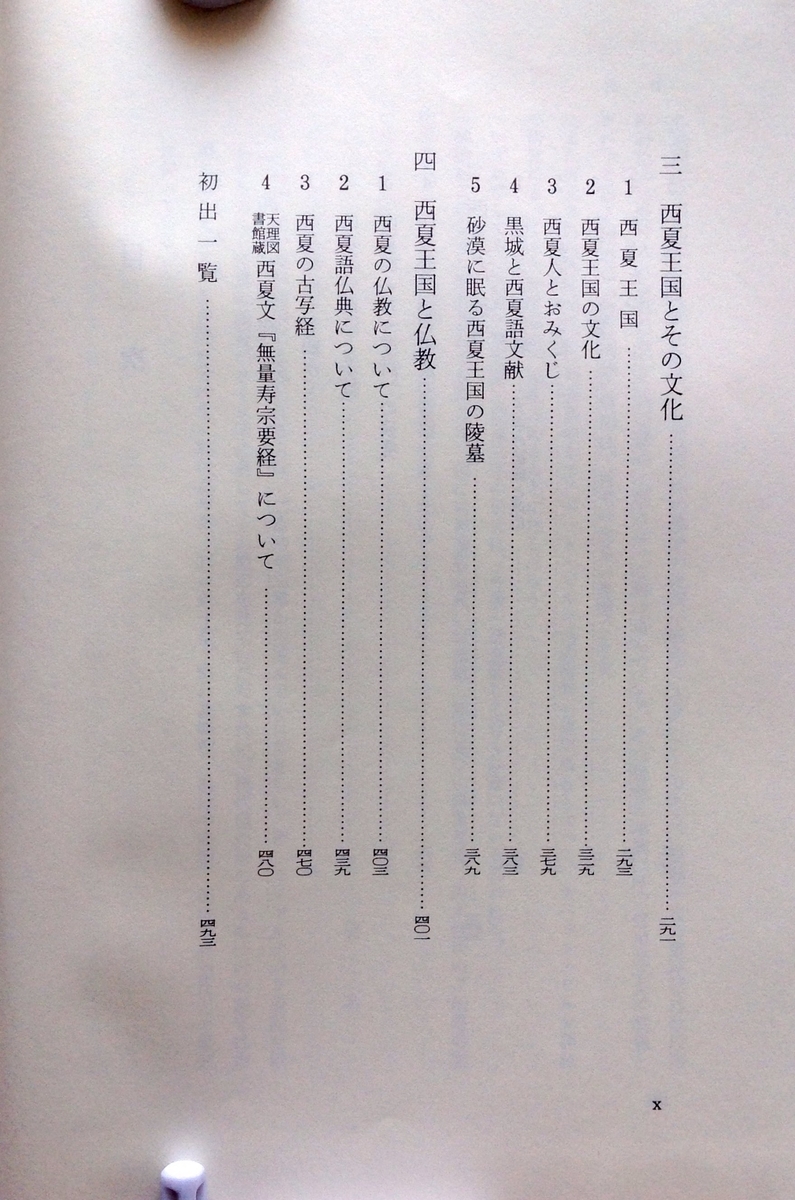 三 西夏王国とその文化……二九一
1 西夏王国……二九三
2 西夏王国の文化……三二九
3 西夏人とおみくじ……三七九
4 黒城と西夏語文献……三八三
5 砂漠に眠る西夏王国の陵墓……三八九
四 西夏王国と仏教……四〇一
1 西夏の仏教について……四〇三
2 西夏語仏典について……四三九
3 西夏の古写経……四七〇
4 天理図書館蔵 西夏文『無量寿宗要経』について……四八〇
初出一覧……四九三
x